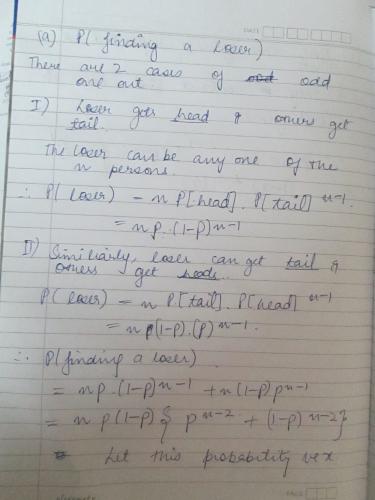 (a) P( finding a Loser)
There are 2 cases of odd
one out.
I) Loser gets head & others get
tail.
The loser can be any one of the
n persons.
∴ P( loser) = n P[head]. P[tail]^n-1.
= n p. (1-p)^n-1
II) Similarly, loser can get tail &
others get heads.
P( loser) = n P[tail]. P[head]^n-1
= n (1-p).(p)^n-1.
∴ P(finding a loser).
= np.(1-p)^n-1 + n(1-p)p^n-1
= n p(1-p) { p^n-2 + (1-p)^n-2}
Let this probability be x